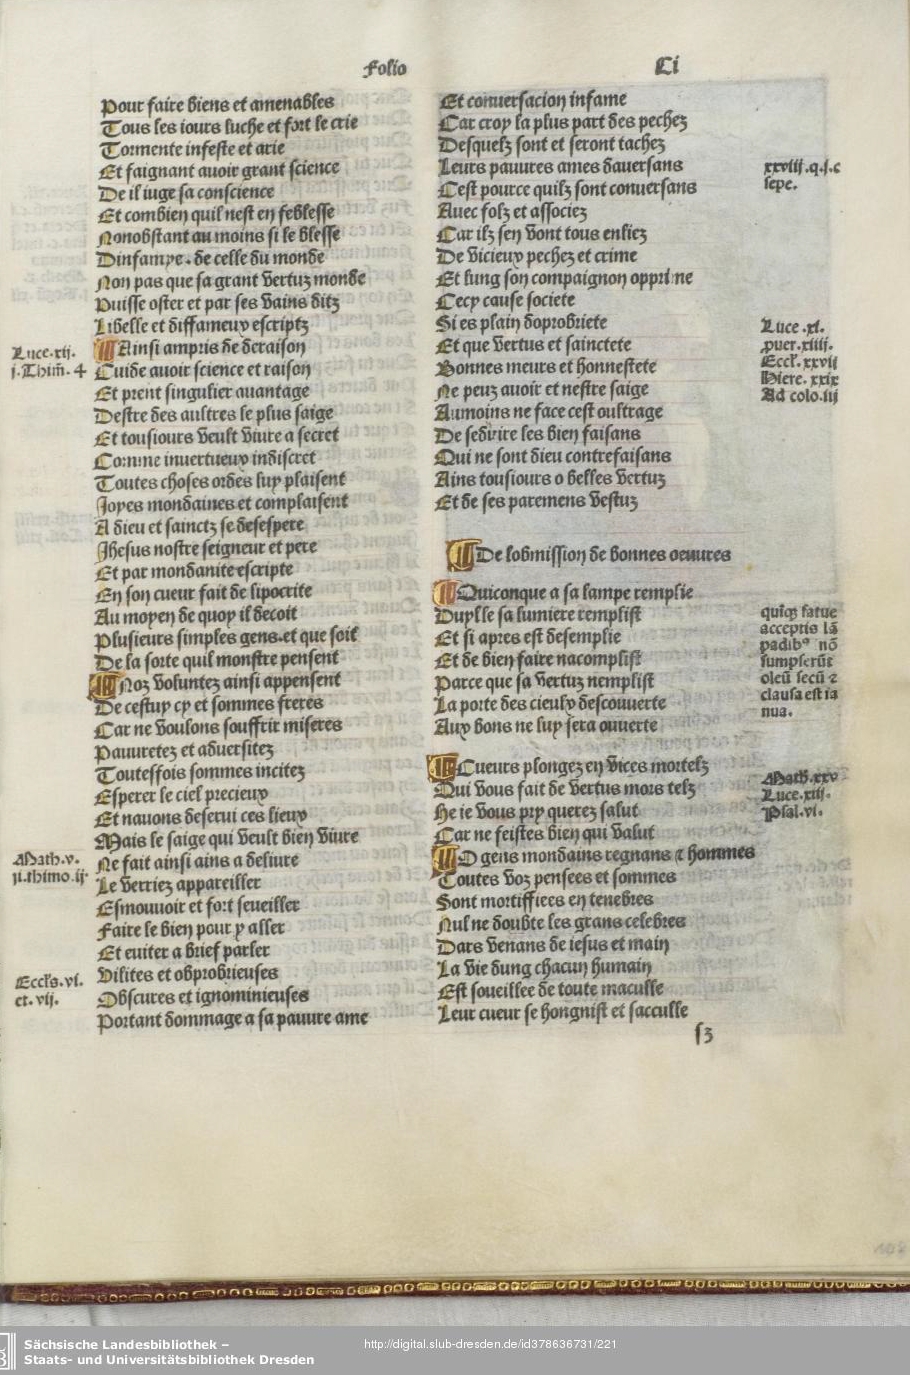 Folio
Ci
Pour faire biens et amenables
Tous les iours luche et fort le crie
Tormente infeste et arie
Et faignant auoir grant science
De il iuge sa conscience
Et combien quil nest en feblesse
Nonobstant au moins si le blesse
Dinfamye. de celle du monde
Non pas que sa grant vertuz monde
Puisse oster et par ses vains ditz
Libelle et diffameux escriptz
Ainsi ampris de deraison
Cuide auoir science et raison
Et prent singulier auantage
Destre des aultres le plus saige
Et tousiours veult viure a secret
Comme inuertueux indiscret
Toutes choses ordes luy plaisent
Joyes mondaines et complaisent
A dieu et sainctz se desespere
Jhesus nostre seigneur et pere
Et par mondanite escripte
En son cueur fait de lipocrite
Au moyen de quoy il decoit
Plusieurs simples gens.et que soit
De la sorte quil monstre pensent
Noz voluntez ainsi appensent
De cestuy cy et sommes freres
Car ne voulons souffrir miseres
Pauuretez et aduersitez
Toutesfois sommes incitez
Esperer le ciel precieux
Et nauons deserui ces lieux
Mais le saige qui veult bien viure
Ne fait ainsi ains a deliure
Le verriez appareiller
Esmouuoir et fort seueiller
Faire le bien pour y aller
Et euiter a brief parler
Vilites et obprobrieuses
Obscures et ignominieuses
Portant dommage a sa pauure ame
Luce.xij.
j.Thim̄. 4
Math.v.
ij.thimo.ij.
Eccl's.vi.
et.vij.
Et conuersacion infame
Car croy la plus part des pechez
Desquelz sont et seront tachez
Leurs pauures ames dauersans
Cest pource quilz sont conuersans
Auec folz et associez
Car ilz sen vont tous enliez
De vicieux pechez et crime
Et lung son compaignon opprime
Cecy cause societe
Si es plain doprobriete
Et que vertus et sainctete
Bonnes meurs et honnestete
Ne peuz auoir et nestre saige
Aumoins ne face cest oultrage
De seduire les bien faisans
Qui ne sont dieu contrefaisans
Ains tousiours o belles vertuz
Et de ses paremens vestuz
De lobmission de bonnes oeuures
Quiconque a sa lampe remplie
Duylle sa lumiere remplist
Et si apres est desemplie
Et de bien faire nacomplist
Parce que sa vertuz nemplist
La porte des cieulx descouuerte
Aux bons ne luy sera ouuerte
Cueurs plongez en vices mortelz
Qui vous fait de vertus mors telz
He ie vous pry querez salut
Car ne feistes bien qui valut
O gens mondains regnans ⁊ hommes
Toutes voz pensees et sommes
Sont mortiffiees en tenebres
Nul ne doubte les grans celebres
Dars venans de iesus et main
La vie dung chacun humain
Est soueillee de toute maculle
Leur cueur se hongnist et sacculle
xxviij.q.j.c
sepe.
Luce.xi.
puer.xiiij.
Eccl'.xxvij
Hiere.xxix
Ad colo.iij
quīqȝ fatue
acceptis lā
padibꝰ nō
sumpserūt
oleū secū ⁊
clausa est ia
nua.
Math.xxv
Luce.xiij.
Psal.vi.
s3
Sächsische Landesbibliothek –
Staats- und Universitätsbibliothek Dresden
http://digital.slub-dresden.de/id378636731/221